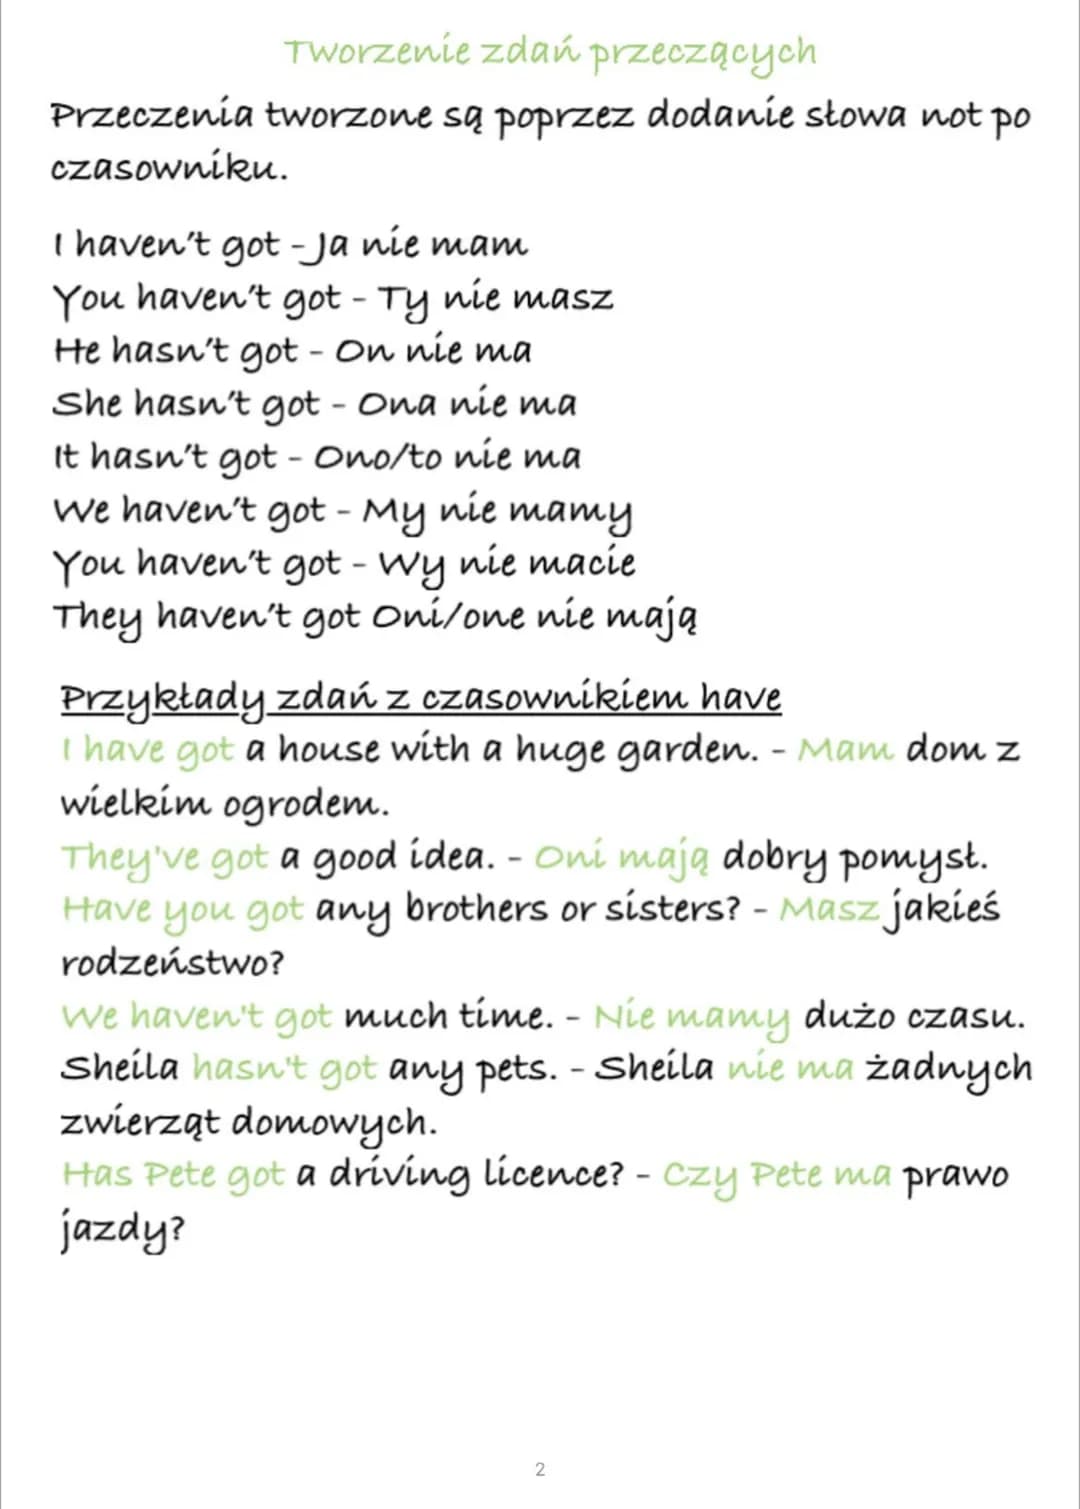 Tworzenie zdań przeczących
Przeczenia tworzone są poprzez dodanie słowa not po
czasowniku.
I haven't got - Ja nie mam
You haven't got - Ty nie masz
He hasn't got - On nie ma
She hasn't got - Ona nie ma
It hasn't got - Ono/to nie ma
We haven't got - My nie mamy
You haven't got - Wy nie macie
They haven't got Oni/one nie mają
Przykłady zdań z czasownikiem have
I have got a house with a huge garden. - Mam dom z
wielkim ogrodem.
They've got a good idea. - Oni mają dobry pomysł.
Have you got any brothers or sisters? - Masz jakieś
rodzeństwo?
We haven't got much time. - Nie mamy dużo czasu.
Sheila hasn't got any pets. - Sheila nie ma żadnych
zwierząt domowych.
Has Pete got a driving licence? - Czy Pete ma prawo
jazdy?
2